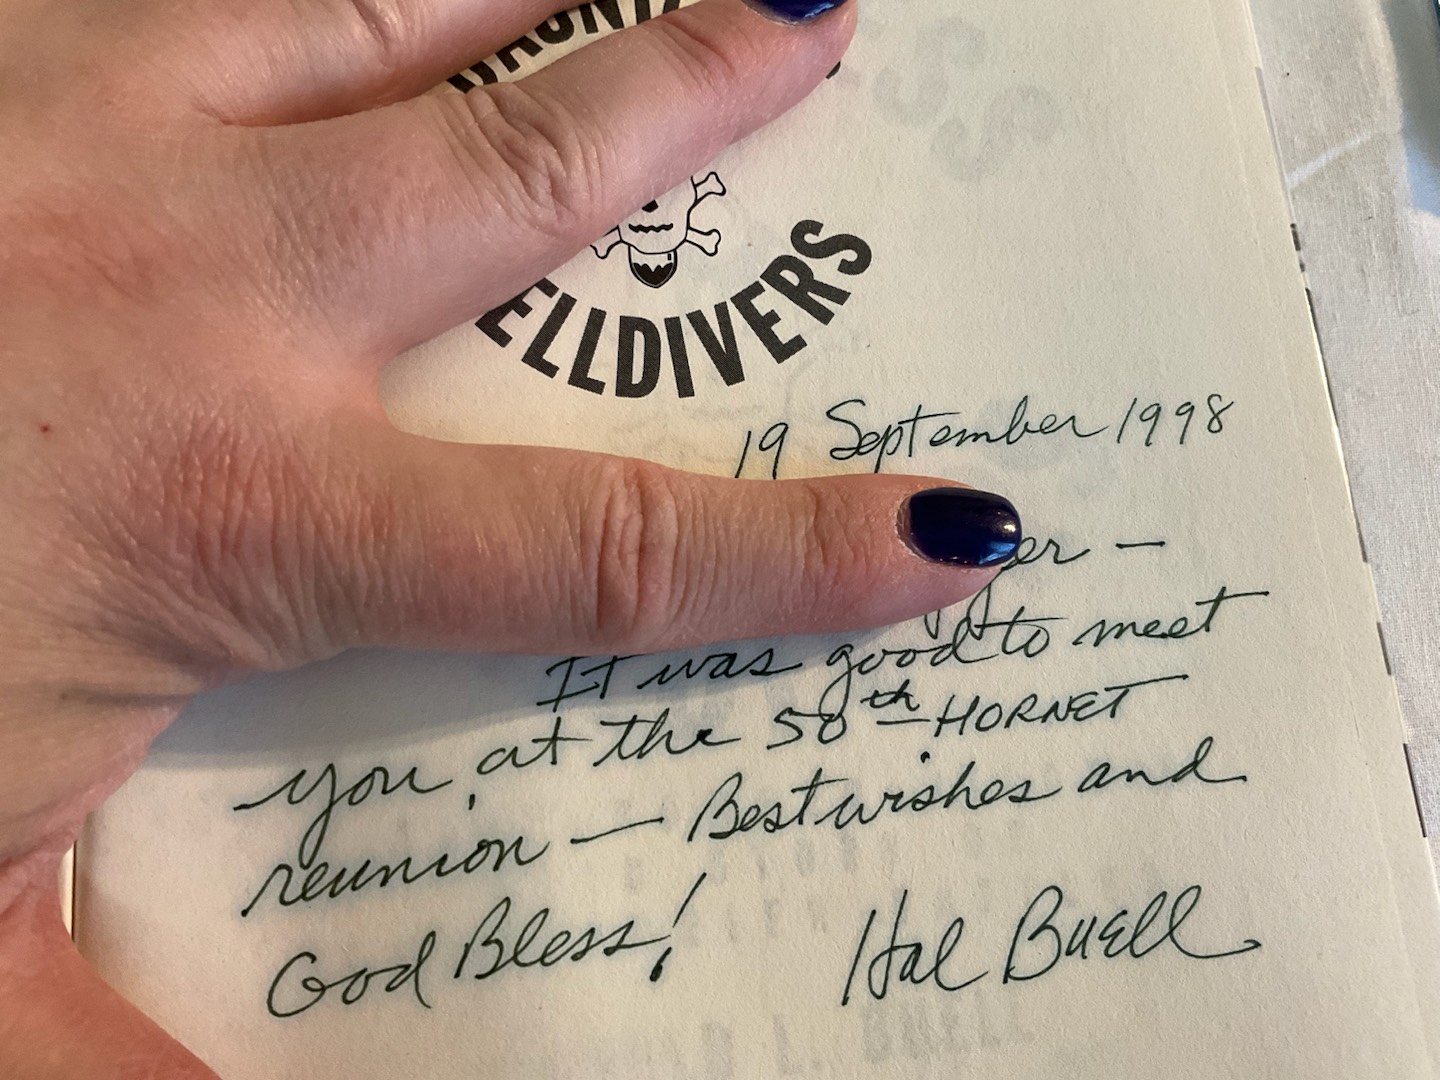 ELLDIVERS
19 September 1998
er —
It was good to meet
you, at the 50th HORNET
reunion — Best wishes and
God Bless! Hal Buell